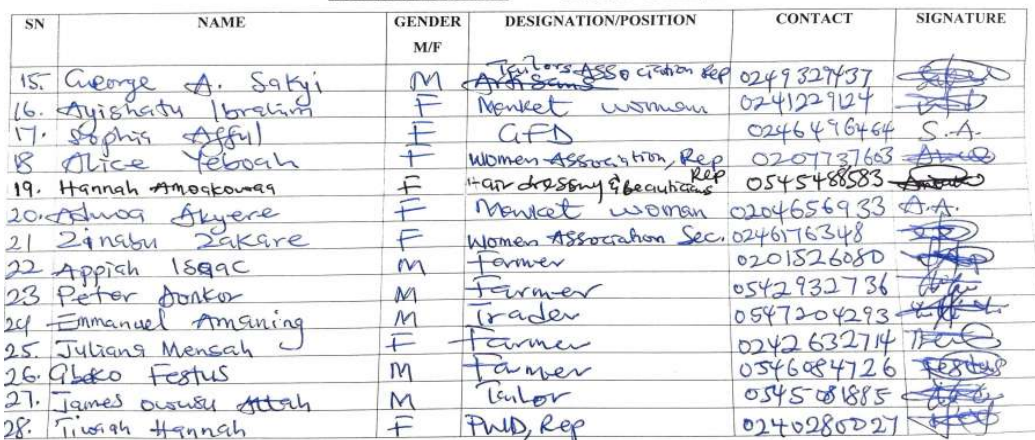 SN NAME GENDER M/F DESIGNATION/POSITION CONTACT SIGNATURE
15. George A. Sakyi M Tailors Association Rep 0249329437
16. Ayishatu Ibrahim F Market woman 0241229124
17. Sophia Afful F GFD 0246496464 S.A.
18 Alice Yeboah F Women Association, Rep 0207737603
19. Hannah Amoakowaa F Hair dressing & beauticians Rep 0545488583
20. Adwoa Akyere F Market woman 0204656933 A.A.
21 Zinabu Zakare F Women Association Sec. 0246176348
22 Appiah Isaac M Farmer 0201526080
23 Peter Donkor M Farmer 0542932736
24 Emmanuel Amaning M Trader 0547204293
25. Juliana Mensah F Farmer 0242632714
26. Festus M Farmer 0546084726 Festus
27. James Owusu Attah M Tailor 0545081885
28. Tiwiah Hannah F PWD, Rep 0240280027